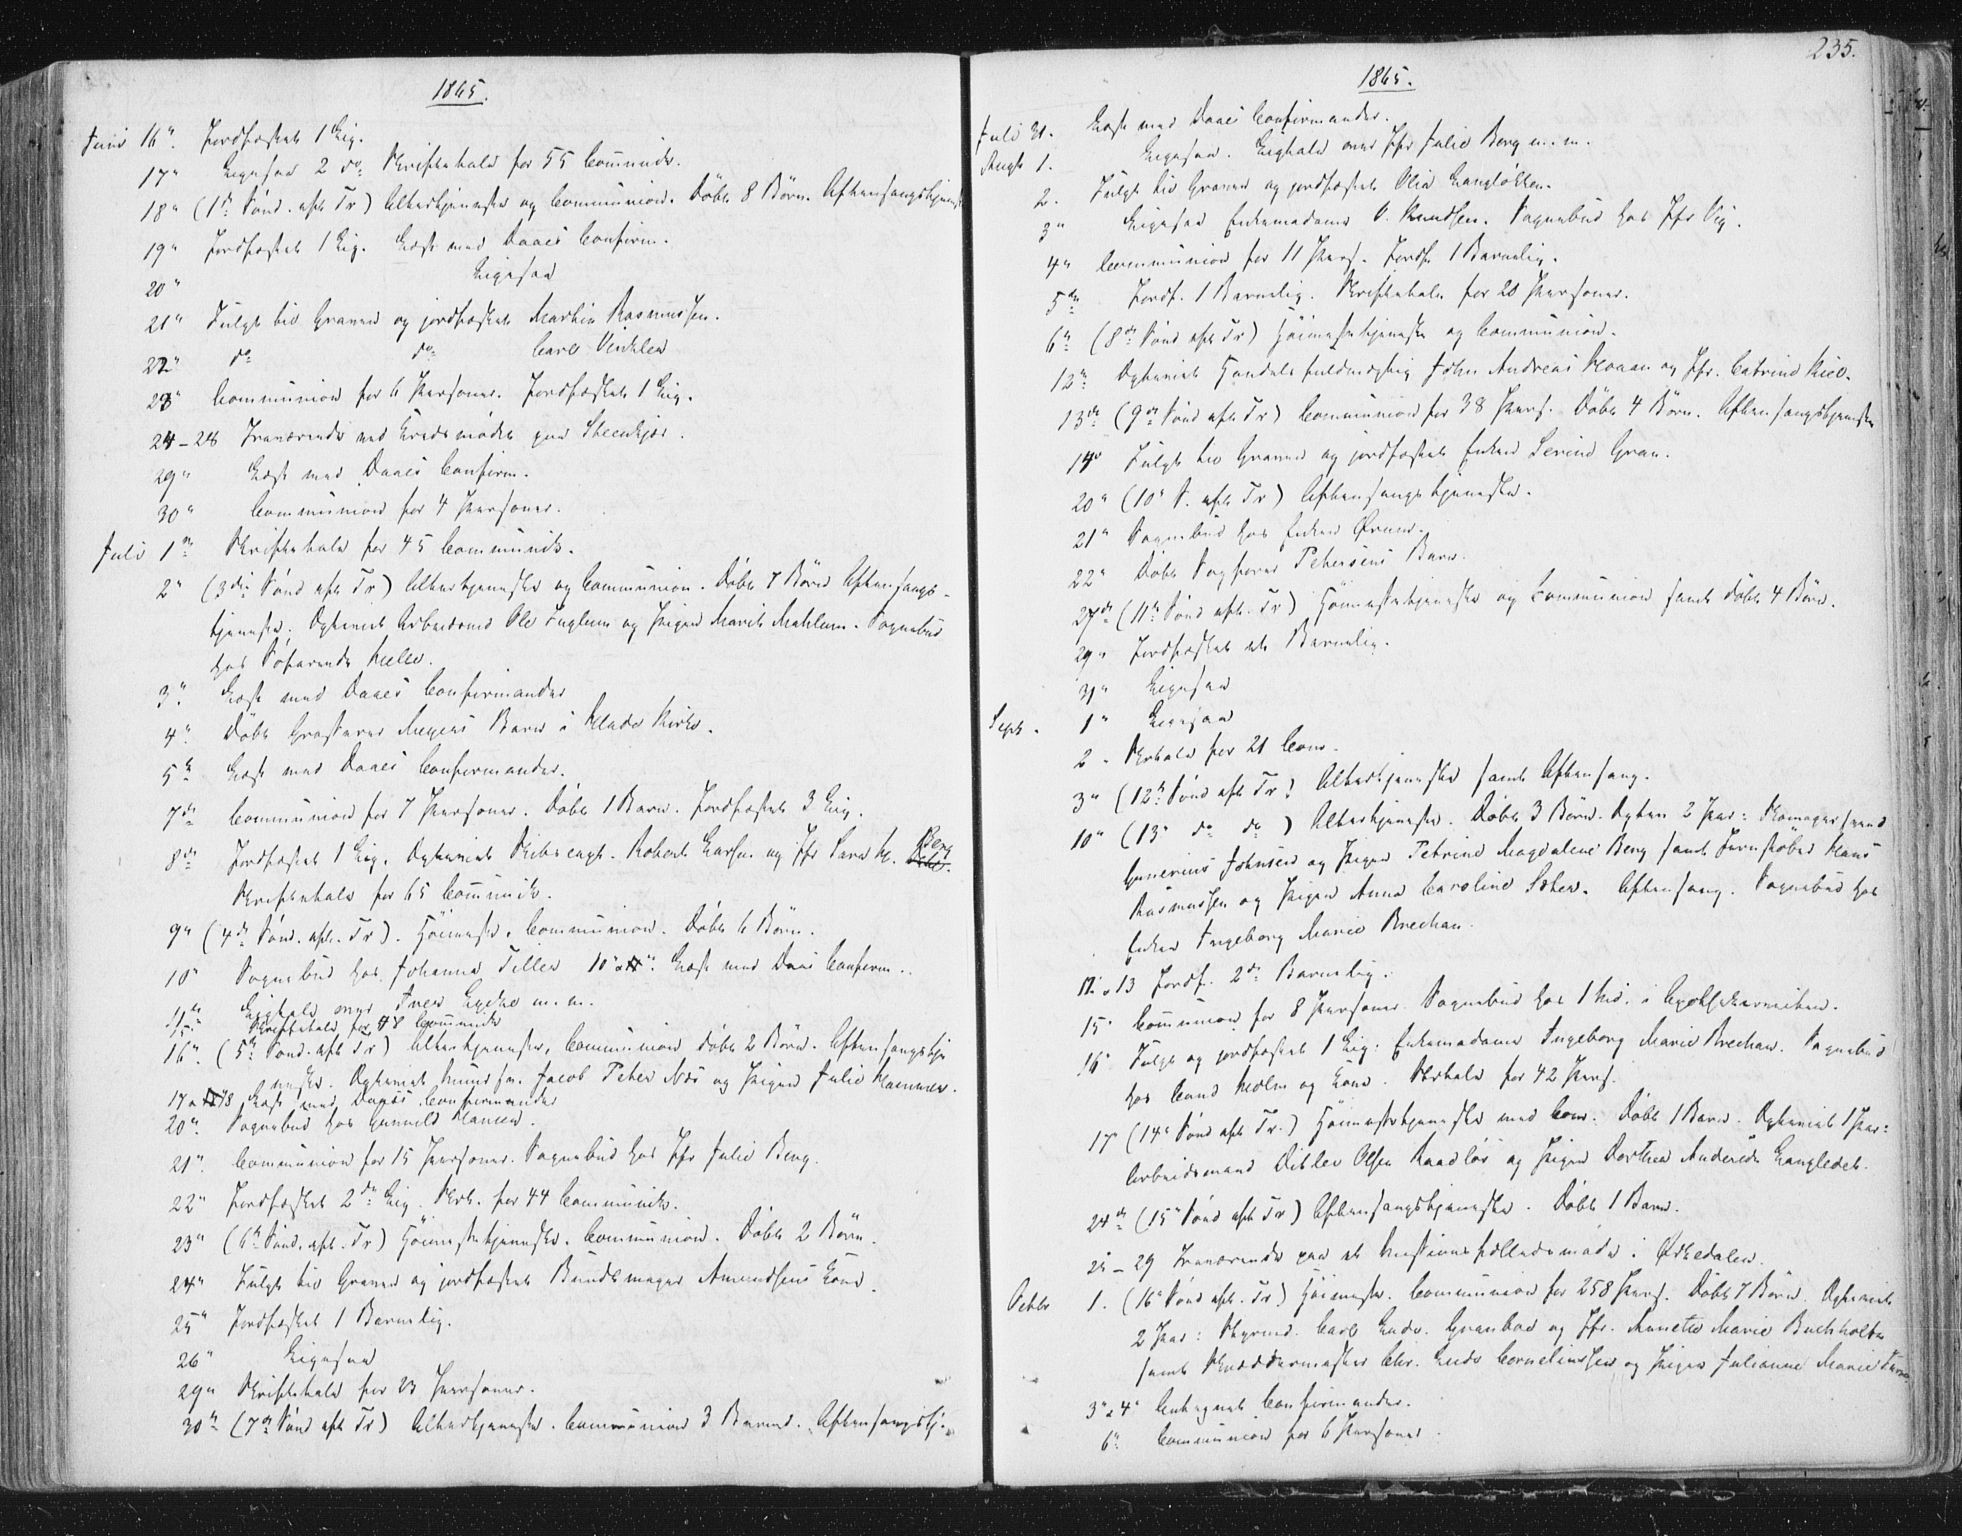 1865.
Juni 16" Jordfæstet 1 Lig.
17" Ligesaa 2 do. Skriftetale for 55 Communic.
18" (1ste Sönd. eft Tr) Altertjeneste og Communion. Döbt 8 Börn. Aftensangstjeneste
19" Jordfæstet 1 Lig. Læst med Daaes Confirm.
20" Ligesaa
21" Fulgt til Graven og jordfæstet Martin Rasmussen.
22" do do Carl Vinkler
23" Communion for 6 Personer. Jordfæstet 1 Lig.
24-28 Fraværende ved Kredsmödet paa Steenkjær.
29" Læst med Daaes Confirm.
30" Communion for 4 Personer.
Juli 1ste Skriftetale for 45 Communic.
2" (3die Sönd eft Tr) Altertjeneste og Communion. Döbt 7 Börn Aftensangs-
tjeneste. Ægteviet Arbeidsmd Ole Fuglem og Pigen Marit Mehlum. Sognebud
hos Söfarende
3" Læst med Daaes Confirmander
4" Döbt Meyers Barn i Klæbo Kirke.
5te Læst med Daaes Confirmander.
7de Communion for 7 Personer. Döbt 1 Barn. Jordfæstet 3 Lig.
8de Jordfæstet 1 Lig. Ægteviet Robert Larsen og Jfr Sara M. Berg
Skriftetale for 65 Communic.
9" (4de Sönd. eft. Tr). Höimesse, Communion. Döbt 6 Börn.
10" Sognebud hos Johanna Tiller 10" Læst med Daaes Confirm.
11te Ligtale over Iver m.m.
15" Skriftetale for 48 Communic
16" (5te Sönd. eft Tr) Altertjeneste, Communion döbt 2 Börn. Aftensangstje
neste. Ægteviet Jacob Peter Næs og Pigen Julie Hammer.
17 18 Læst med Daaes Confirmander
20" Sognebud hos Gunnild Hansen.
21" Communion for 15 Personer. Sognebud hos Jfr Julie Berg.
22" Jordfæstet 2de Lig. Skrt. for 44 Communic.
23" (6te Sönd. eft. Tr) Höimessetjeneste. Communion. Döbt 2 Börn.
24" Fulgt til Graven og jordfæstet Bundtmager Amundsens Kone.
25" Jordfæstet 1 Barnelig.
26" Ligesaa
29" Skriftetale for 23 Personer.
30te (7de Sönd eft Tr) Altertjeneste. Communion 3 Barned. Aftensangstj.
235.
1865.
Juli 31. Læst med Daaes Confirmander.
Augt 1. Ligesaa. Ligtale over Jfr Julie Berg m.m.
2. Fulgt til Graven og jordfæstet Olia Langlökken.
3" Ligesaa Enkemadame V. Knudsen. Sognebud hos Jfr Vig.
4" Communion for 11 Pers. Jordf. 1 Barnelig.
5te Jordf. 1 Barnelig. Skriftetale for 20 Personer.
6te (8de Sönd eft Tr) Höimessetjeneste og Communion.
12te Ægteviet Handelsfuldmægtig John Andreas Moxnes og Jfr. Catrine
13de (9de Sönd eft Tr) Communion for 38 Pers. Döbt 4 Börn. Aftensangstjeneste
14" Fulgt til Graven og jordfæstet Enken Serine Gran.
20" (10" S. eft Tr) Aftensangstjeneste.
21" Sognebud hos Enken
22" Döbt Sagförer Petersens Barn.
27de (11te Sönd eft. Tr) Höimessetjeneste og Communion samt döbt 4 Börn.
29" Jordfæstet et Barnelig.
31" Ligesaa
Sept. 1" Ligesaa
2 " Skrtale for 21 Com.
3" (12te Sönd eft Tr) Altertjeneste samt Aftensang.
10" (13" do do) Altertjeneste. Döbt 3 Börn. Ægtev. 2 Par: Skomagersvend
Gunerius Johnsen og Pigen Petrine Magdalene Berg samt Jernstöber Hans
Rasmussen og Pigen Anna Caroline Sæter. Aftensang. Sognebud hos
Enken Ingeborg Marie Brechan.
12. 13 Jordf. 2de Barnelig.
15" Communion for 8 Personer. Sognebud hos 1
16" Fulgt og jordfæstet 1 Lig. Enkemadame Ingeborg Marie Brechan. Sognebud
hos Cand Holm og Kone. Skrtale for 42 Pers.
17" (14de Sönd eft Tr.) Höimessetjeneste med Com. Döbt 1 Barn. Ægteviet 1 Par:
Arbeidsmand Ditlev Olsen Raadlös og Pigen Dorthea Andersdr. Langledet.
24de (15" Sönd eft Tr) Aftensangstjeneste. Döbt 1 Barn.
25-29 Fraværende paa et Missionsfællesmöde i Orkedalen.
Octbr 1. (16" Sönd eft. Tr) Höimesse. Communion for 258 Pers. Döbt 7 Börn. Ægteviet
2 Par: Carl Ludv. Granbo og Jfr. Annette Marie Buchholtz
samt Skræddermester Chr. Ludv Corneliussen og Pigen Julianne Marie
3" & 4" Antegnet Confirmander.
6te Communion for 6 Personer